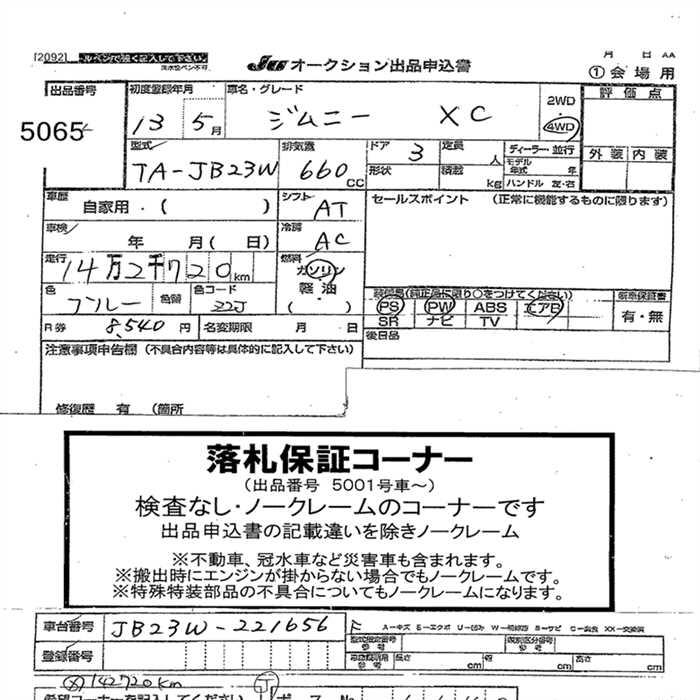 [2092]
JU オークション出品申込書
月 日
①会場用
出品番号 5065
初度登録年月 13 5月
車名・グレード ジムニー XC
2WD
4WD
評価点
外装 内装
型式 TA-JB23W
排気量 660 CC
ドア 3
形状
定員 人
積載 kg
ディーラー・並行
モデル年式 年
ハンドル 左・右
車歴 自家用・( )
シフト AT
セールスポイント (正常に機能するものに限ります)
車検 年 月( 日)
冷房 AC
走行 14万2千720km
燃料 ガソリン
軽油
( )
色 色替 色コード ZZJ
R券 8,540円
名変期限 月 日
PS PW ABS エアB
SR ナビ TV
新車保証書
有・無
後日品
注意事項申告欄 (不具合内容等は具体的に記入して下さい)
修復歴 有 (箇所
落札保証コーナー
(出品番号 5001号車~)
検査なし・ノークレームのコーナーです
出品申込書の記載違いを除きノークレーム
※不動車、冠水車など災害車も含まれます。
※搬出時にエンジンが掛からない場合でもノークレームです。
※特殊特装部品の不具合についてもノークレームになります。
車台番号 JB23W-221656
登録番号
長さ cm 幅 cm 高さ cm
142720km